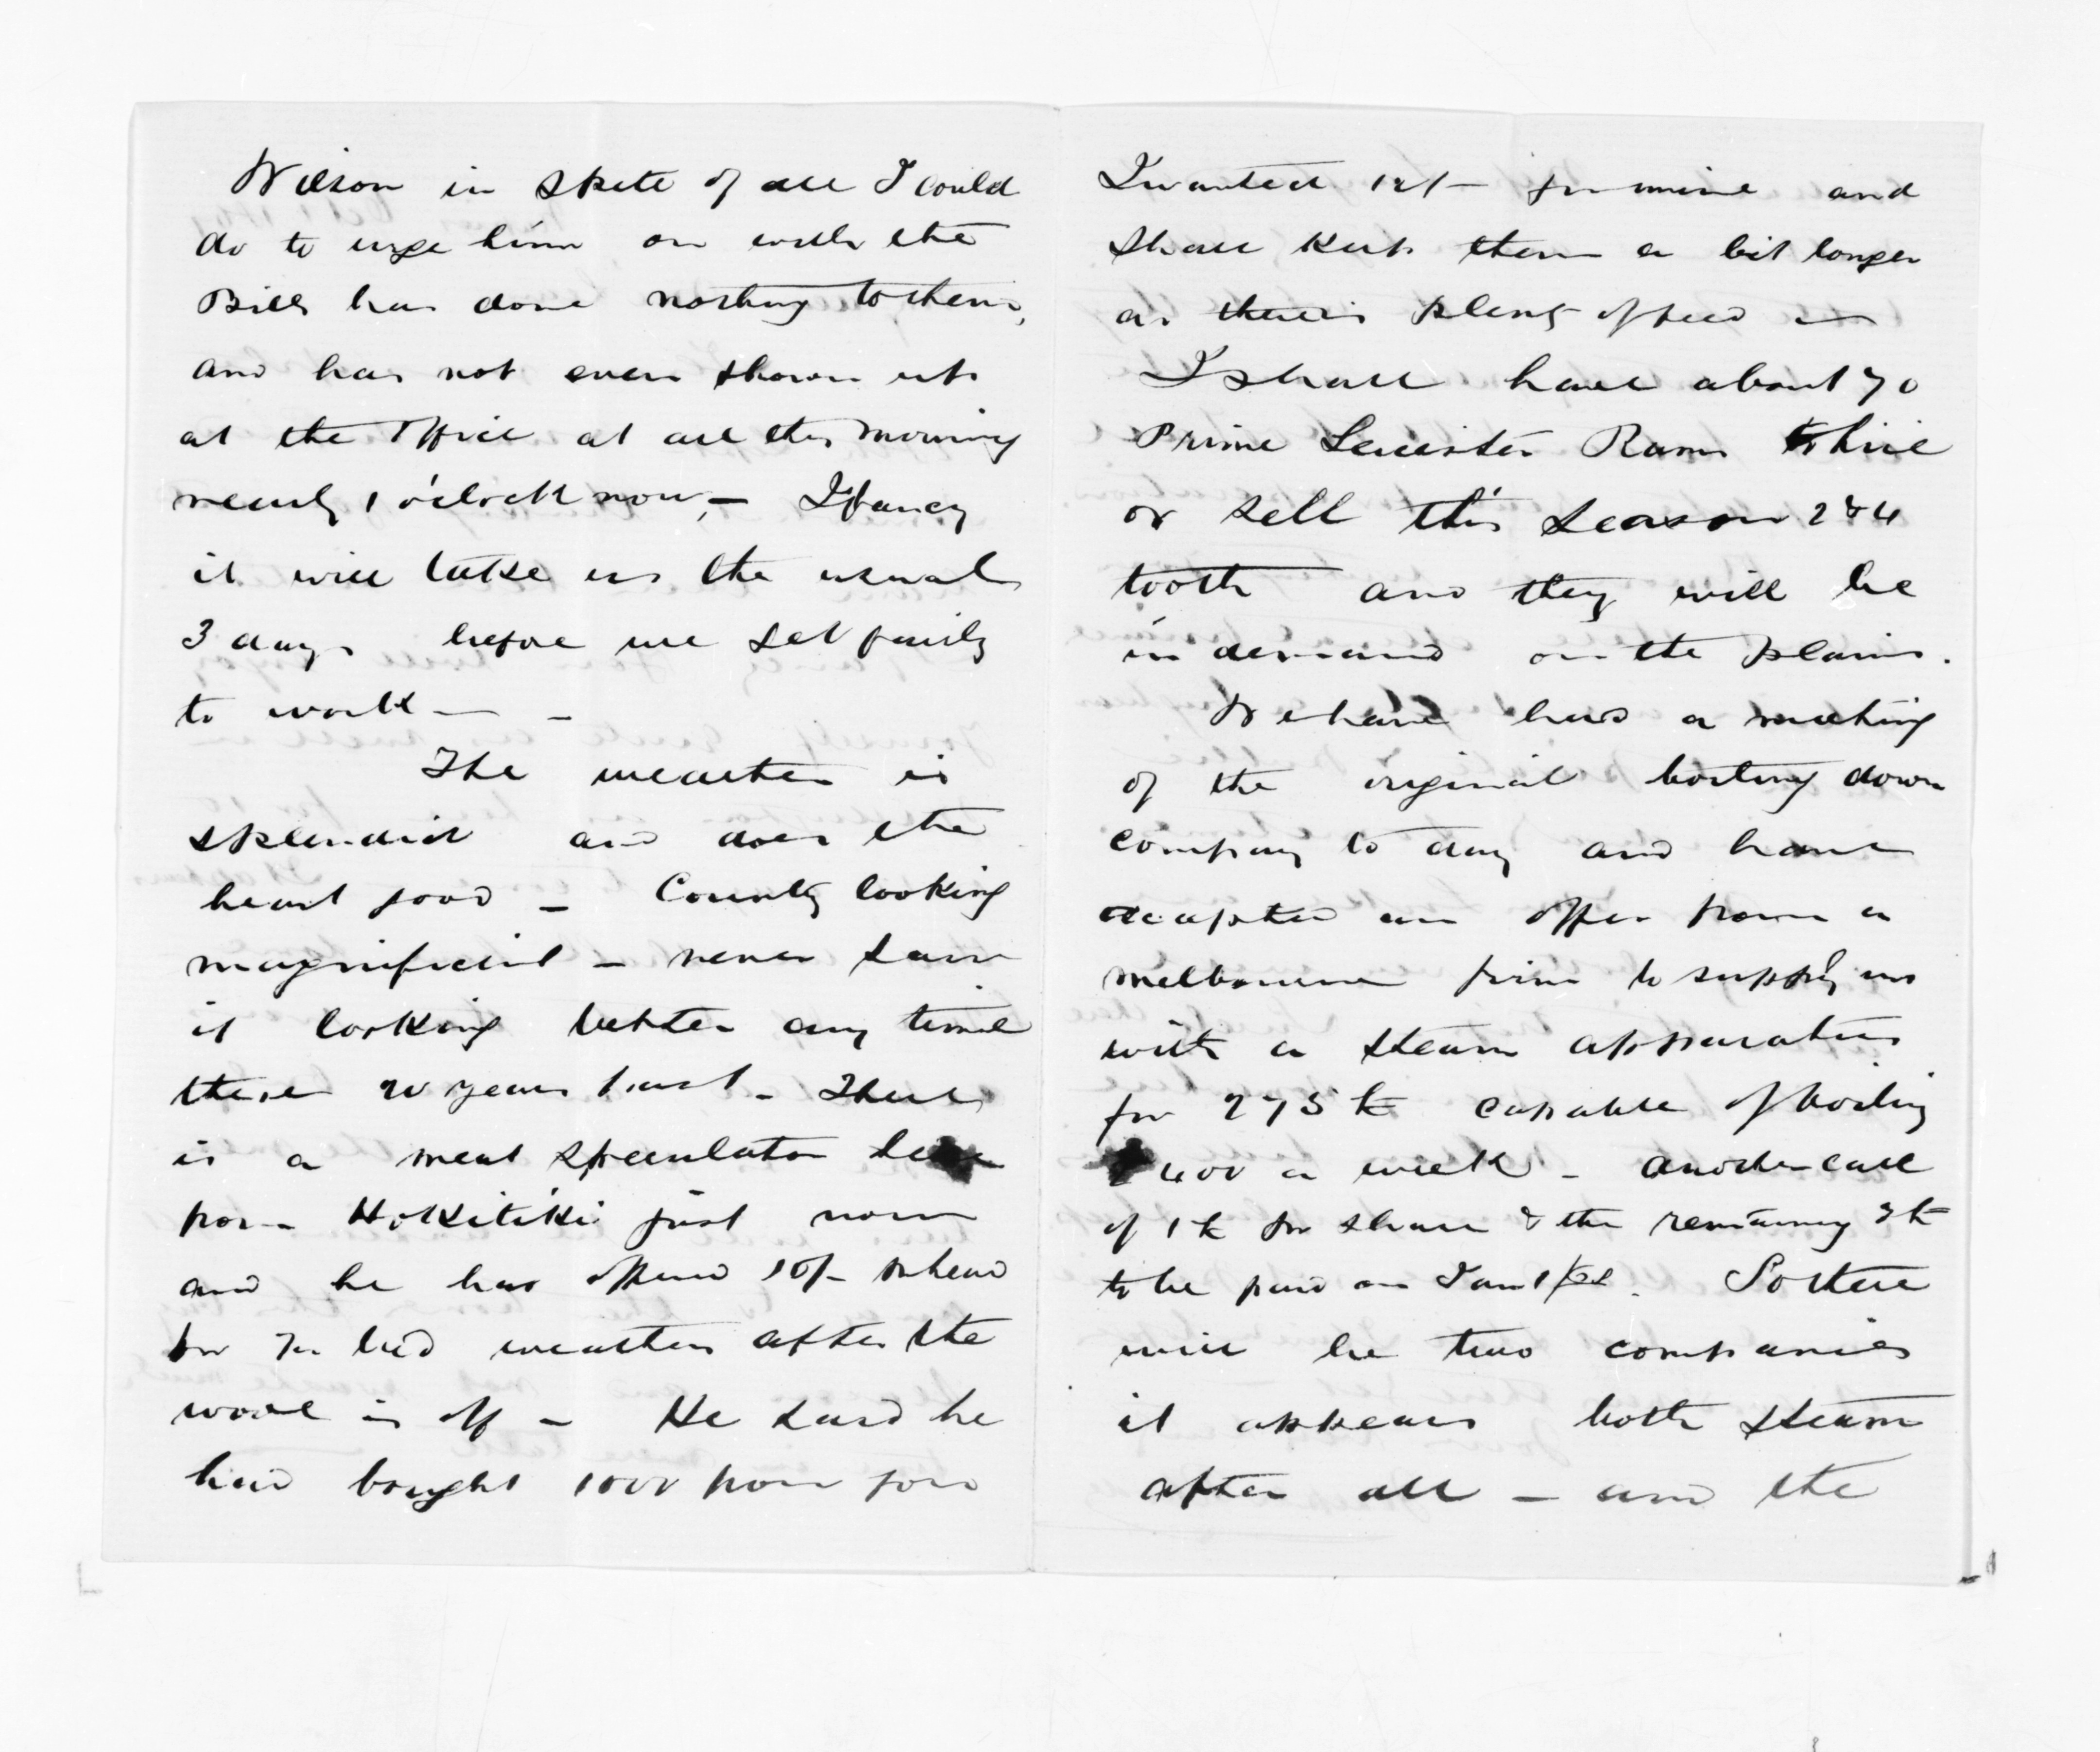 Wilson in spite of all I could
do to urge him on with the
Bills has done nothing to them,
and has not even shown up
at the Office at all this morning
nearly 1 o'clock now, — I fancy
it will take us the usual
3 days before we set fairly
to work — –
The weather is
splendid and does the
heart good – Country looking
magnificent – never saw
it looking better any time
these 20 years past – There
is a meat speculator here
from Hokitiki just now
and he has offered 10/– p head
for bred wethers after the
wool is off – He said he
had bought 1000 from
I wanted 12/– for mine and
shall keep them a bit longer
as there is plenty of feed —
I shall have about 70
Prime Leicester Rams to hire
or sell this season 2 & 4
tooth and they will be
in demand on the plains.
We have had a meeting
of the original boiling down
company to day and have
accepted an offer from a
Melbourne firm to supply us
with a steam apparatus
for 275 £ capable of boiling
400 a week – another call
of 1 £ per share & the remaining 3 £
to be paid on Jan 1st. So there
will be two companies
it appears both steam
after all – and the